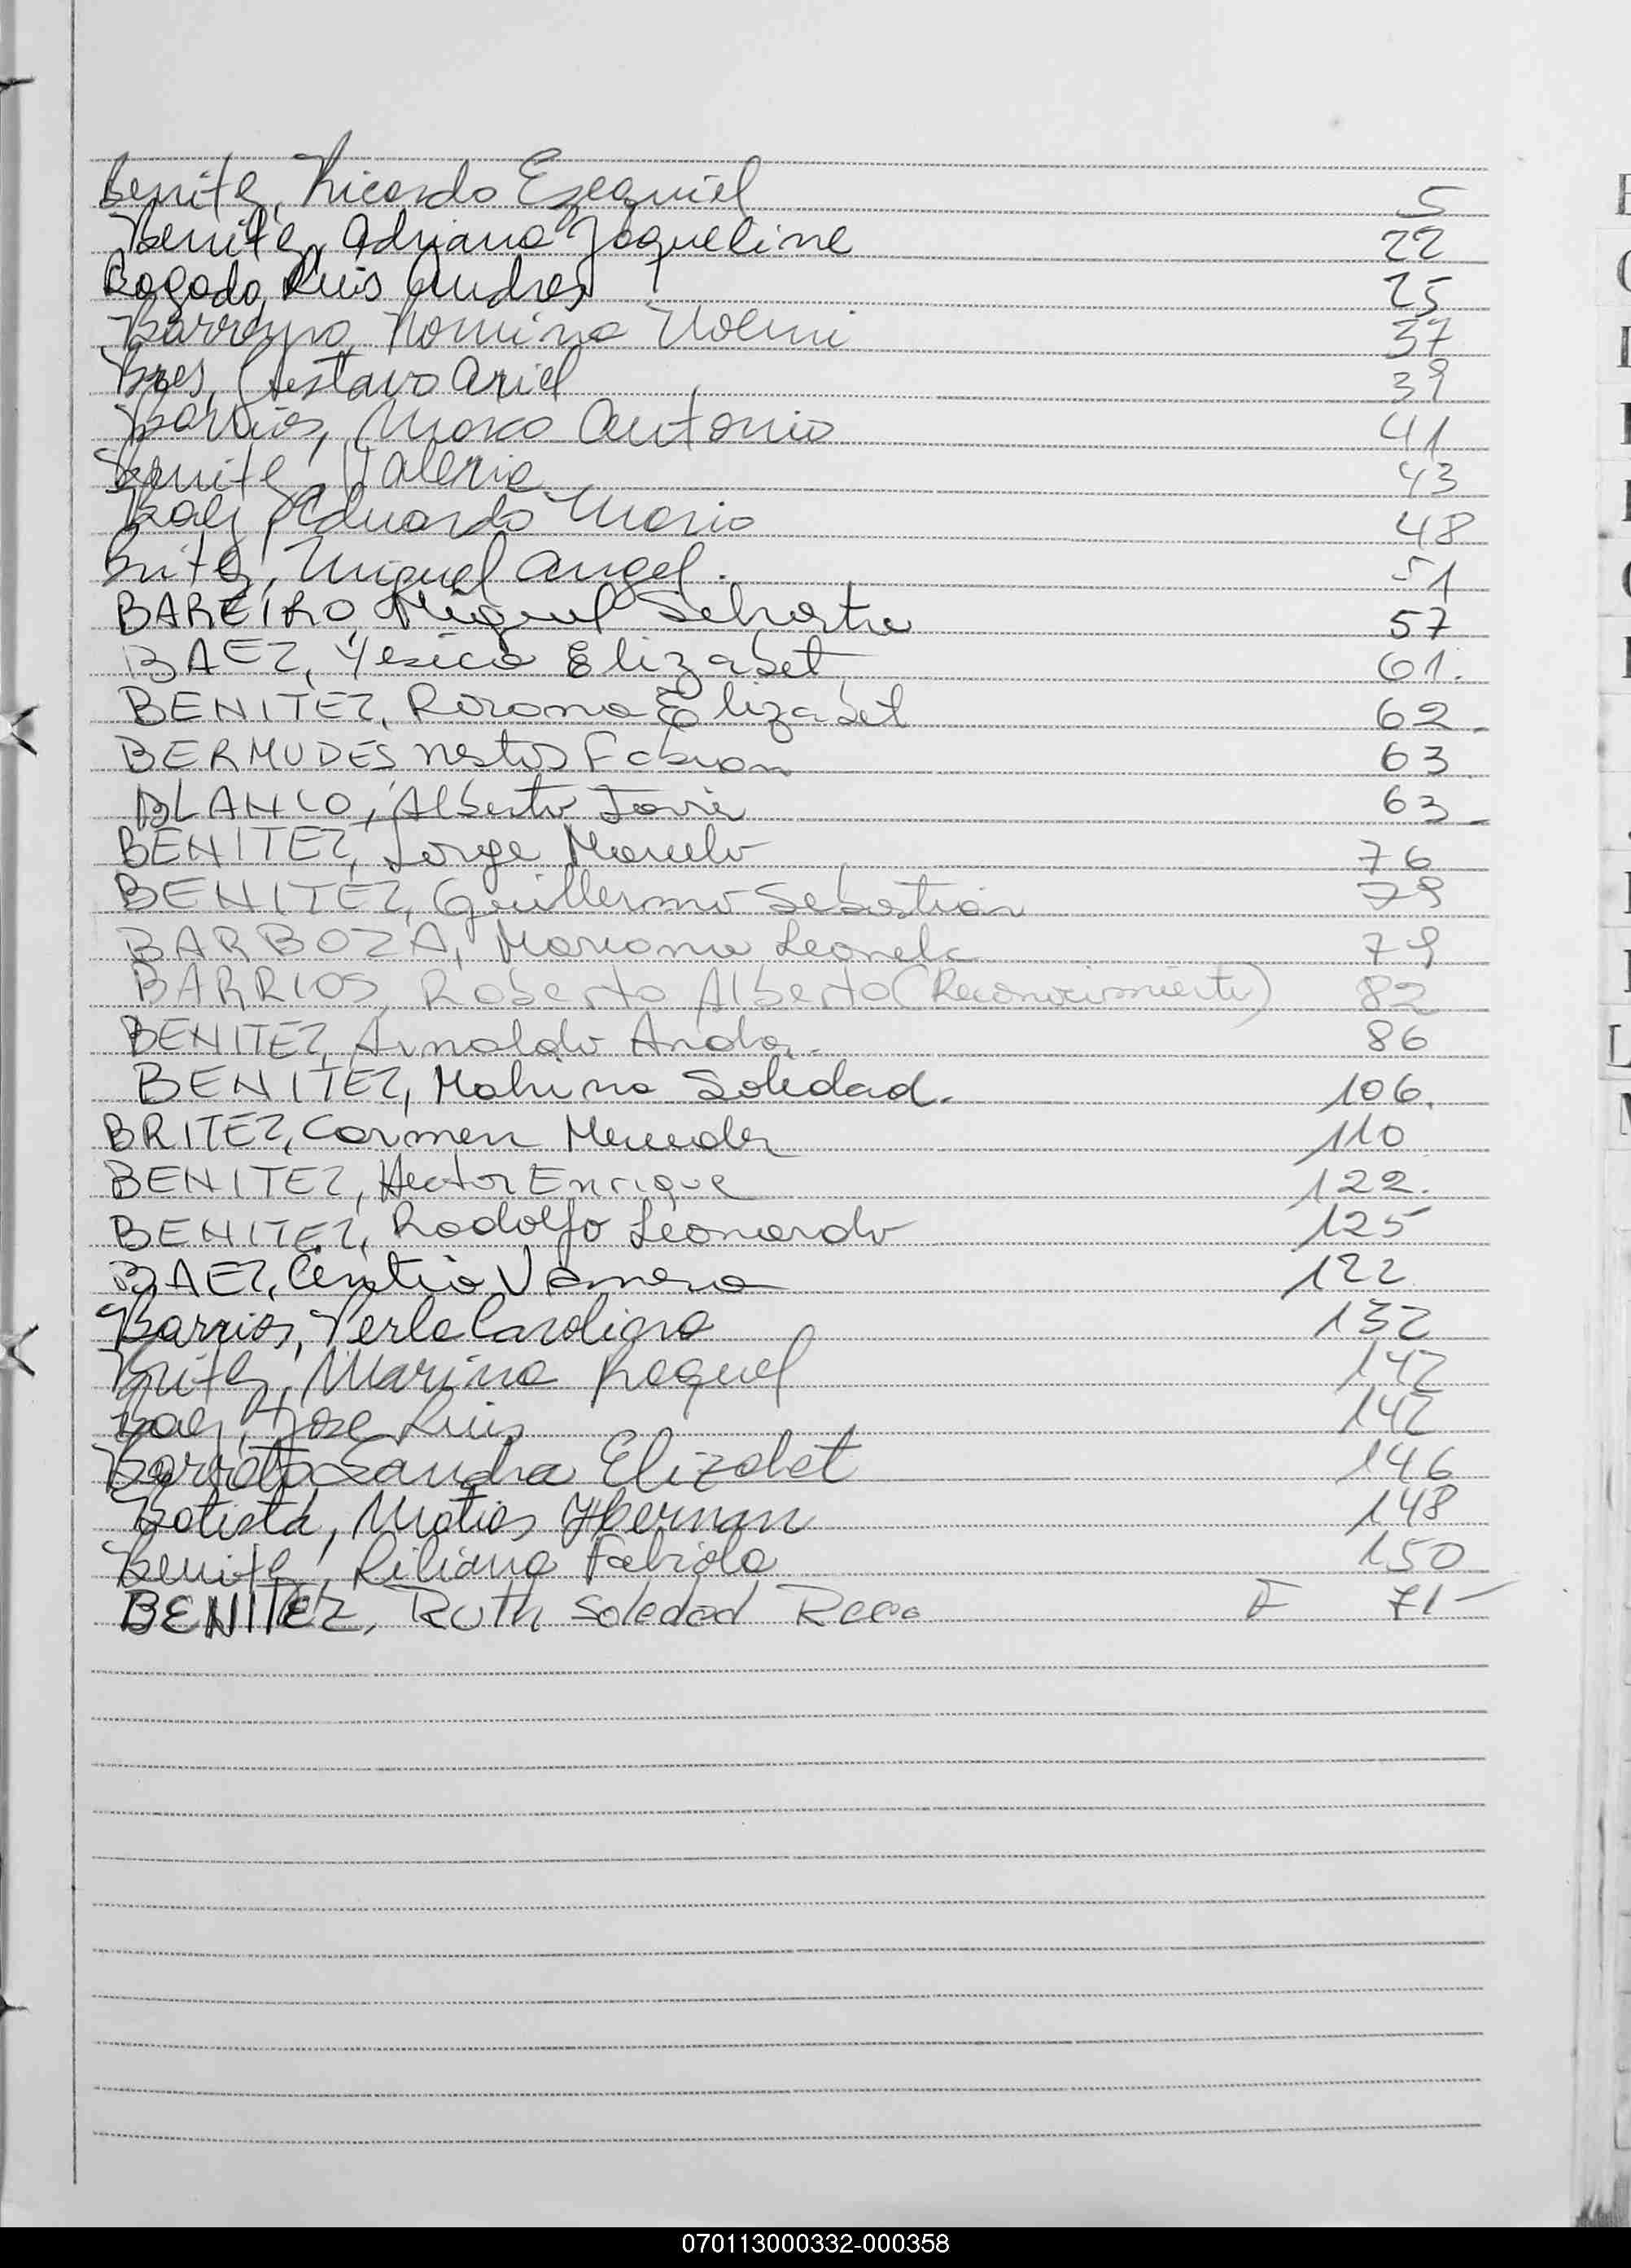 Benitez, Ricardo Ezequiel 5
Benitez, Adriana Jaqueline 22
Bogado, Luis Andres 25
Romina Noemi 37
Gustavo Ariel 39
Barrios, Marco Antonio 41
Benitez, Valeria 43
Baez, Eduardo Mario 48
Britez, Miguel Angel. 51
BAREIRO Miguel 57
BAEZ, Yesica Elizabet 61.
BENITEZ, Rorana Elizabet 62
BERMUDES Nestor Fabian 63
BLANCO, Alberto Javier 63
BENITEZ, Jorge Marcelo 76
BENITEZ, Guillermo Sebastian 79
BARBOZA, Mariana Leonela 79
BARRIOS, Roberto Alberto (Reconocimiento) 82
BENITEZ, Arnoldo 86
BENITEZ, Mahira Soledad. 106.
BRITEZ, Carmen Mercedes 110
BENITEZ, Hector Enrique 122.
BENITEZ, Rodolfo Leonardo 125
BAEZ, Cintia Vanesa 122
Barrios, Perla Carolina 132
Britez, Marina Raquel 142
Baez, Jose Luis 142
Barreto, Sandra Elizabet 146
Batista, Matias Hernan 148
Benitez, Liliana Fabiola 150
BENITEZ, Ruth Soledad F 71-
070113000332-000358